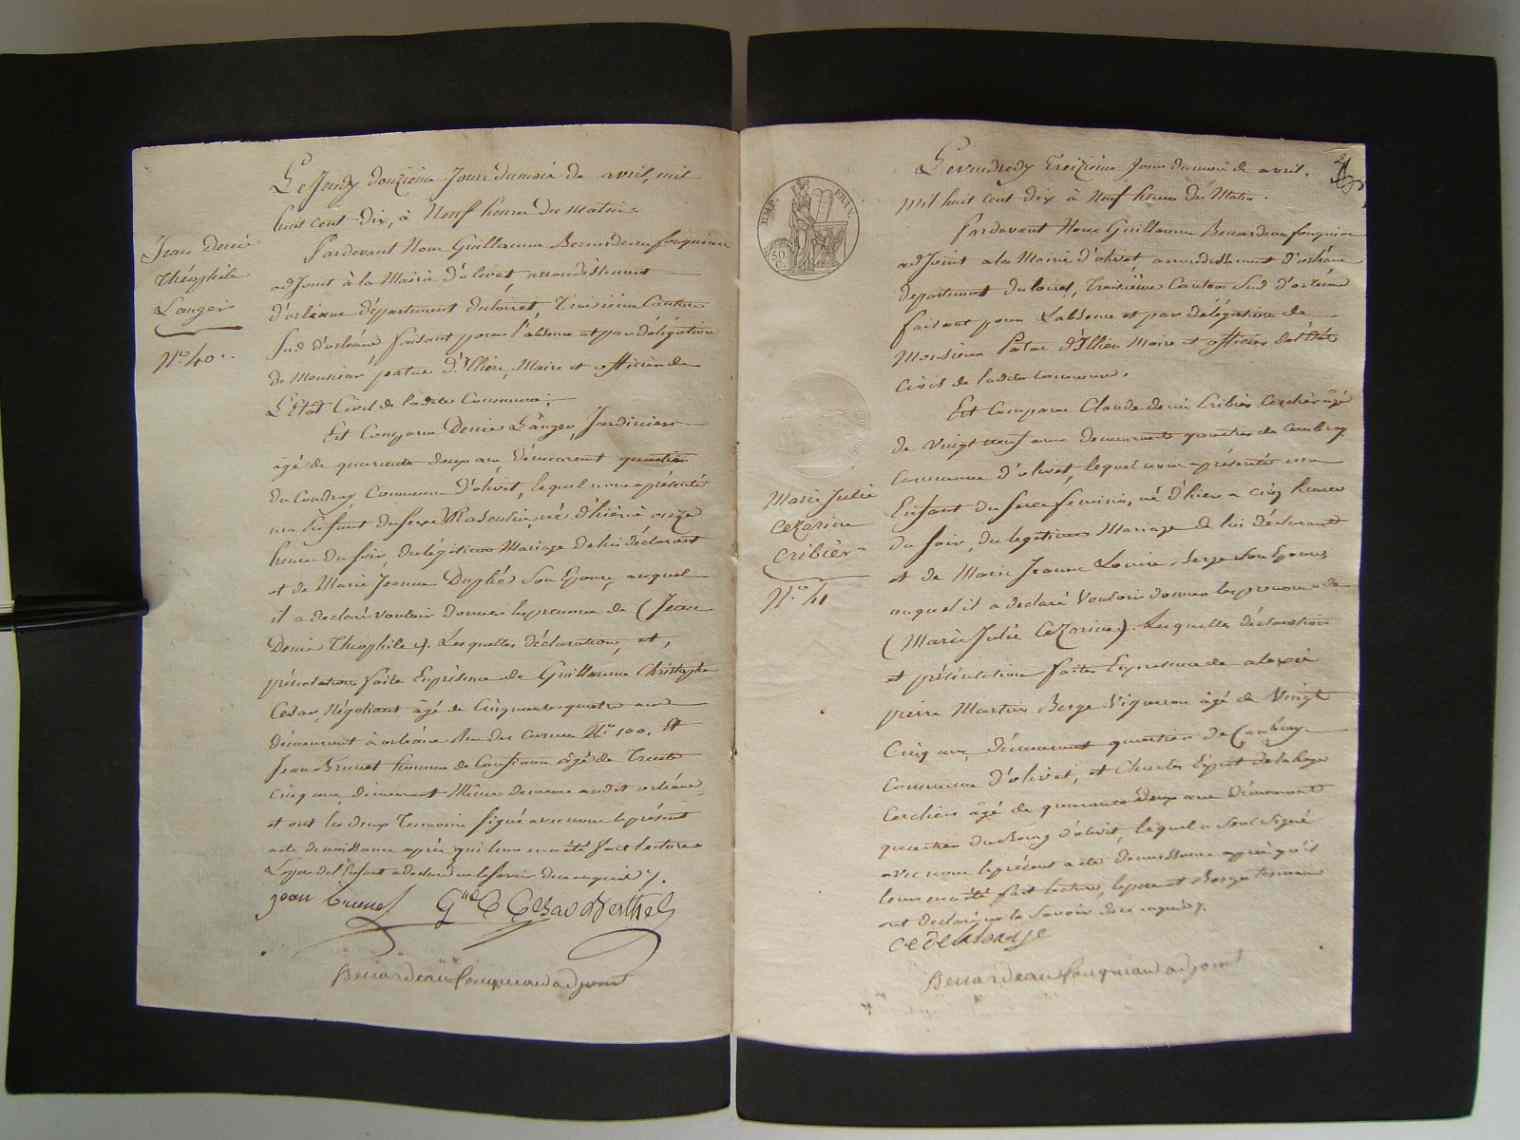 Le Jeudy douzieme Jour du mois de avril, mil
huit cent dix, à Neuf heure du matin.
Pardevant Nous Guillaume Benardeau fouquiau
adjoint à la Mairie d'olivet, arrondissement
d'orléans département du loiret, troisieme Canton
Sud d'orléans, faisant pour l'absence et par délégation
de Monsieur patas d'Illiers, Maire et officier de
L'Etat Civil de ladite Commune;
Jean Denis
Théophile
Langer
N.º 40.
Est Comparu Denis Langer, Jardinier
âgé de quarante deux ans demeurant quartier
du Coudray Commune d'olivet, lequel nous a présenté
un Enfant du Sexe Masculin, né d'hier à onze
heure du soir, du légitime Mariage de lui déclarant
et de Marie Jeanne Son Epouse, auquel
il a declaré vouloir donner les prenoms de (Jean
Denis Théophile). Lesquelles déclarations, et,
présentation faite En présence de Guillaume Christophe
Cesar, Négotiant âgé de Cinquante quatre ans
demeurant à orléans Rue des carmes N.º 100. Et
Jean Brunet homme de Confiance âgé de Trente
Cinq ans, demeurant Même demeure audit orléans,
et ont les deux Temoins signé avec nous le présent
acte de naissance après qui leur en a été fait lecture
Le pere de l'Enfant a declaré ne le savoir de ce enquis /.
jean brunet G.me C Cesar
Benardeau fouquiau adjoint
Le vendredy Treizieme Jour du mois de avril,
mil huit cent dix à Neuf heures du Matin.
Pardevant Nous Guillaume Benardeau fouquiau
adjoint a la Mairie d'olivet arrondissement d'orléans
departement du loiret, Troisieme Canton Sud d'orléans
faisant pour L'absence et par délégation de
Monsieur Patas d'Illiers Maire et officier de l'Etat
Civil de ladite Commune.
EMP. FRAN.
50
Marie Julie
Cezarine
Cribier
N.º 41
Est Comparu Claude denis Cribier Cerclier âgé
de vingt neuf ans demeurant quartier de Cambray
Commune d'olivet, lequel nous a présenté un
Enfant du Sexe féminin, né d'hier a cinq heures
du soir, du legitime Mariage de lui déclarant
et de Marie Jeanne Louise Berge Son Epouse
auquel il a declaré Vouloir donner les prenoms de
(Marie Julie Cezarine). Lesquelles déclaration
et présentation faites En presence de alexis
pierre Martin Berge Vigneron âgé de Vingt
Cinq ans, demeurant quartier de Cambray
Commune d'olivet, et Charles Esprit delahaye
Cerclier âgé de quarante deux ans demeurant
quartier du Bourg d'olivet, lequel a Seul Signé
avec nous le présent acte de naissance après qu'il
leur en a été fait lecture, le pere et Berge temoin
ont declaré ne le Savoir de ce enquis /.
Benardeau fouquiau adjoint